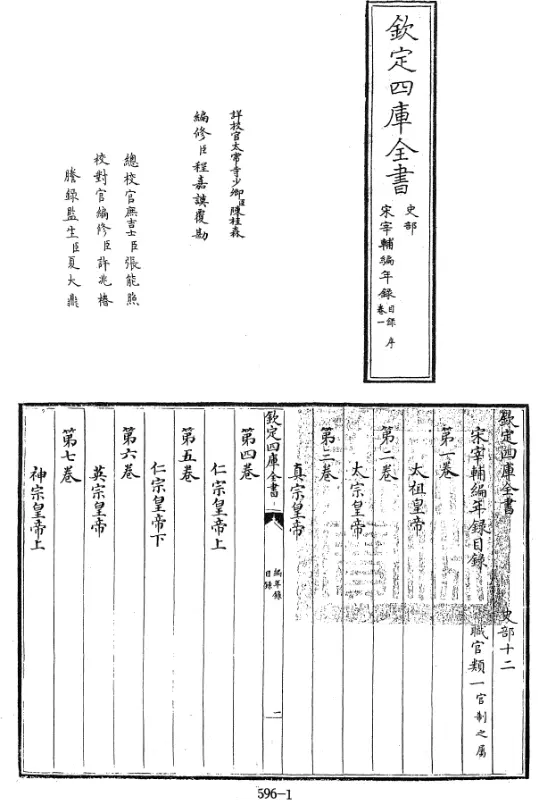 欽定四庫全書
史部
宋宰輔編年錄
目錄 序
卷一
詳校官太常寺少卿臣陳桂森
編修臣程嘉謨覆勘
總校官庶吉士臣張能照
校對官編修臣許兆椿
謄錄監生臣夏大鼎
欽定四庫全書
史部十二
宋宰輔編年錄目錄
職官類一官制之屬
第一卷
太祖皇帝
第二卷
太宗皇帝
第三卷
真宗皇帝
欽定四庫全書
編年錄
目錄
一
第四卷
仁宗皇帝上
第五卷
仁宗皇帝下
第六卷
英宗皇帝
第七卷
神宗皇帝上
596-1